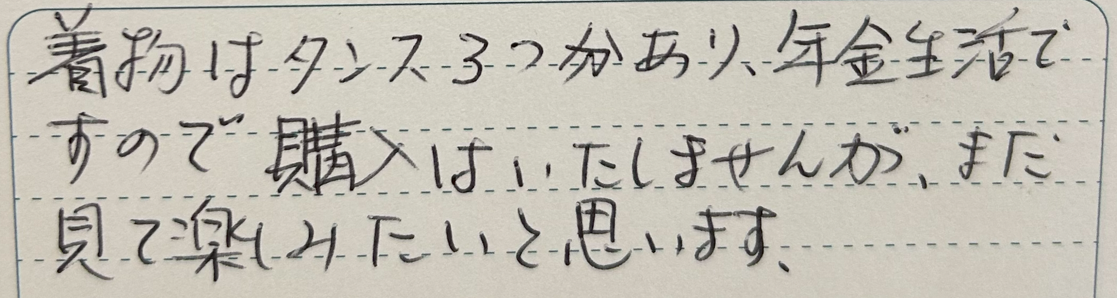 着物はタンス3つ分あり、年金生活で
すので購入はいたしませんが、まだ
見て楽しみたいと思います、